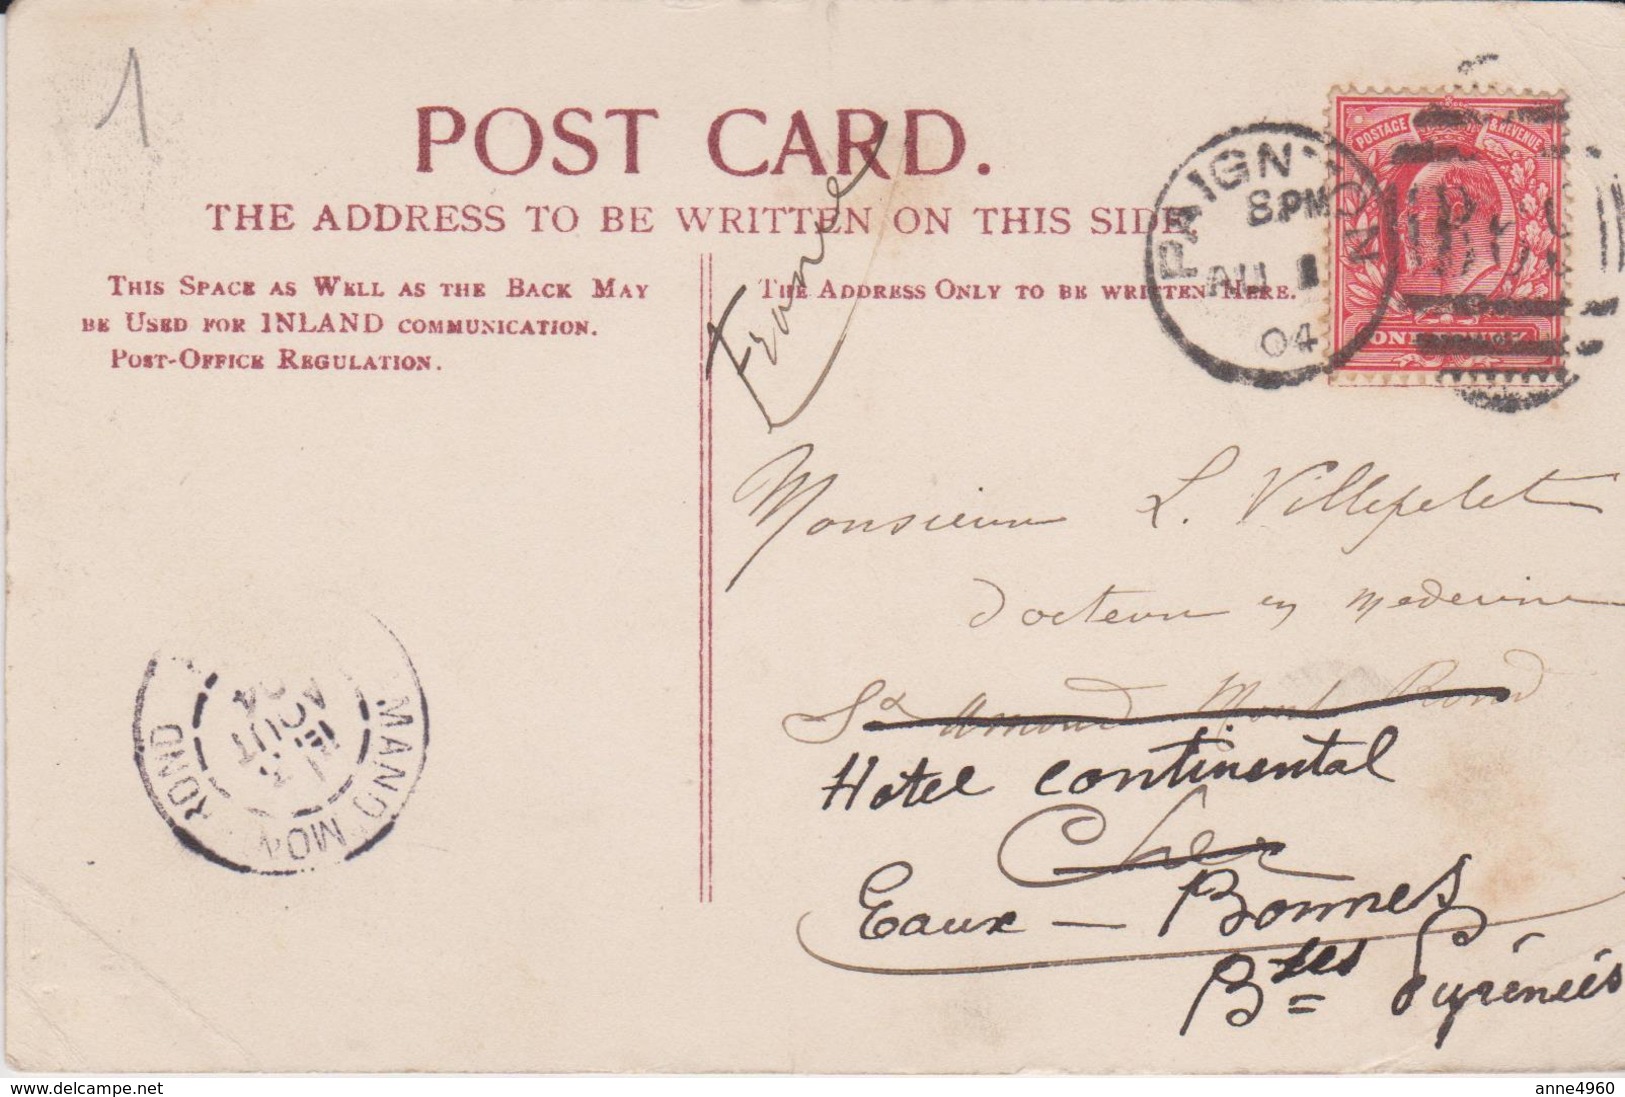 1
POST CARD.
THE ADDRESS TO BE WRITTEN ON THIS SIDE.
THIS SPACE AS WELL AS THE BACK MAY
BE USED FOR INLAND COMMUNICATION.
POST-OFFICE REGULATION.
THE ADDRESS ONLY TO BE WRITTEN HERE.
France
PAIGNTON
8.PM
AU 1
04
POSTAGE & REVENUE
ONE
Monsieur L. Villepelet
docteur en medecine
St Amand Mont Rond
Hotel Continental
Cher
Eaux-Bonnes
Btes Pyrénées
MAND MO ROND
AOUT
04
www.delcampe.net
anne4960